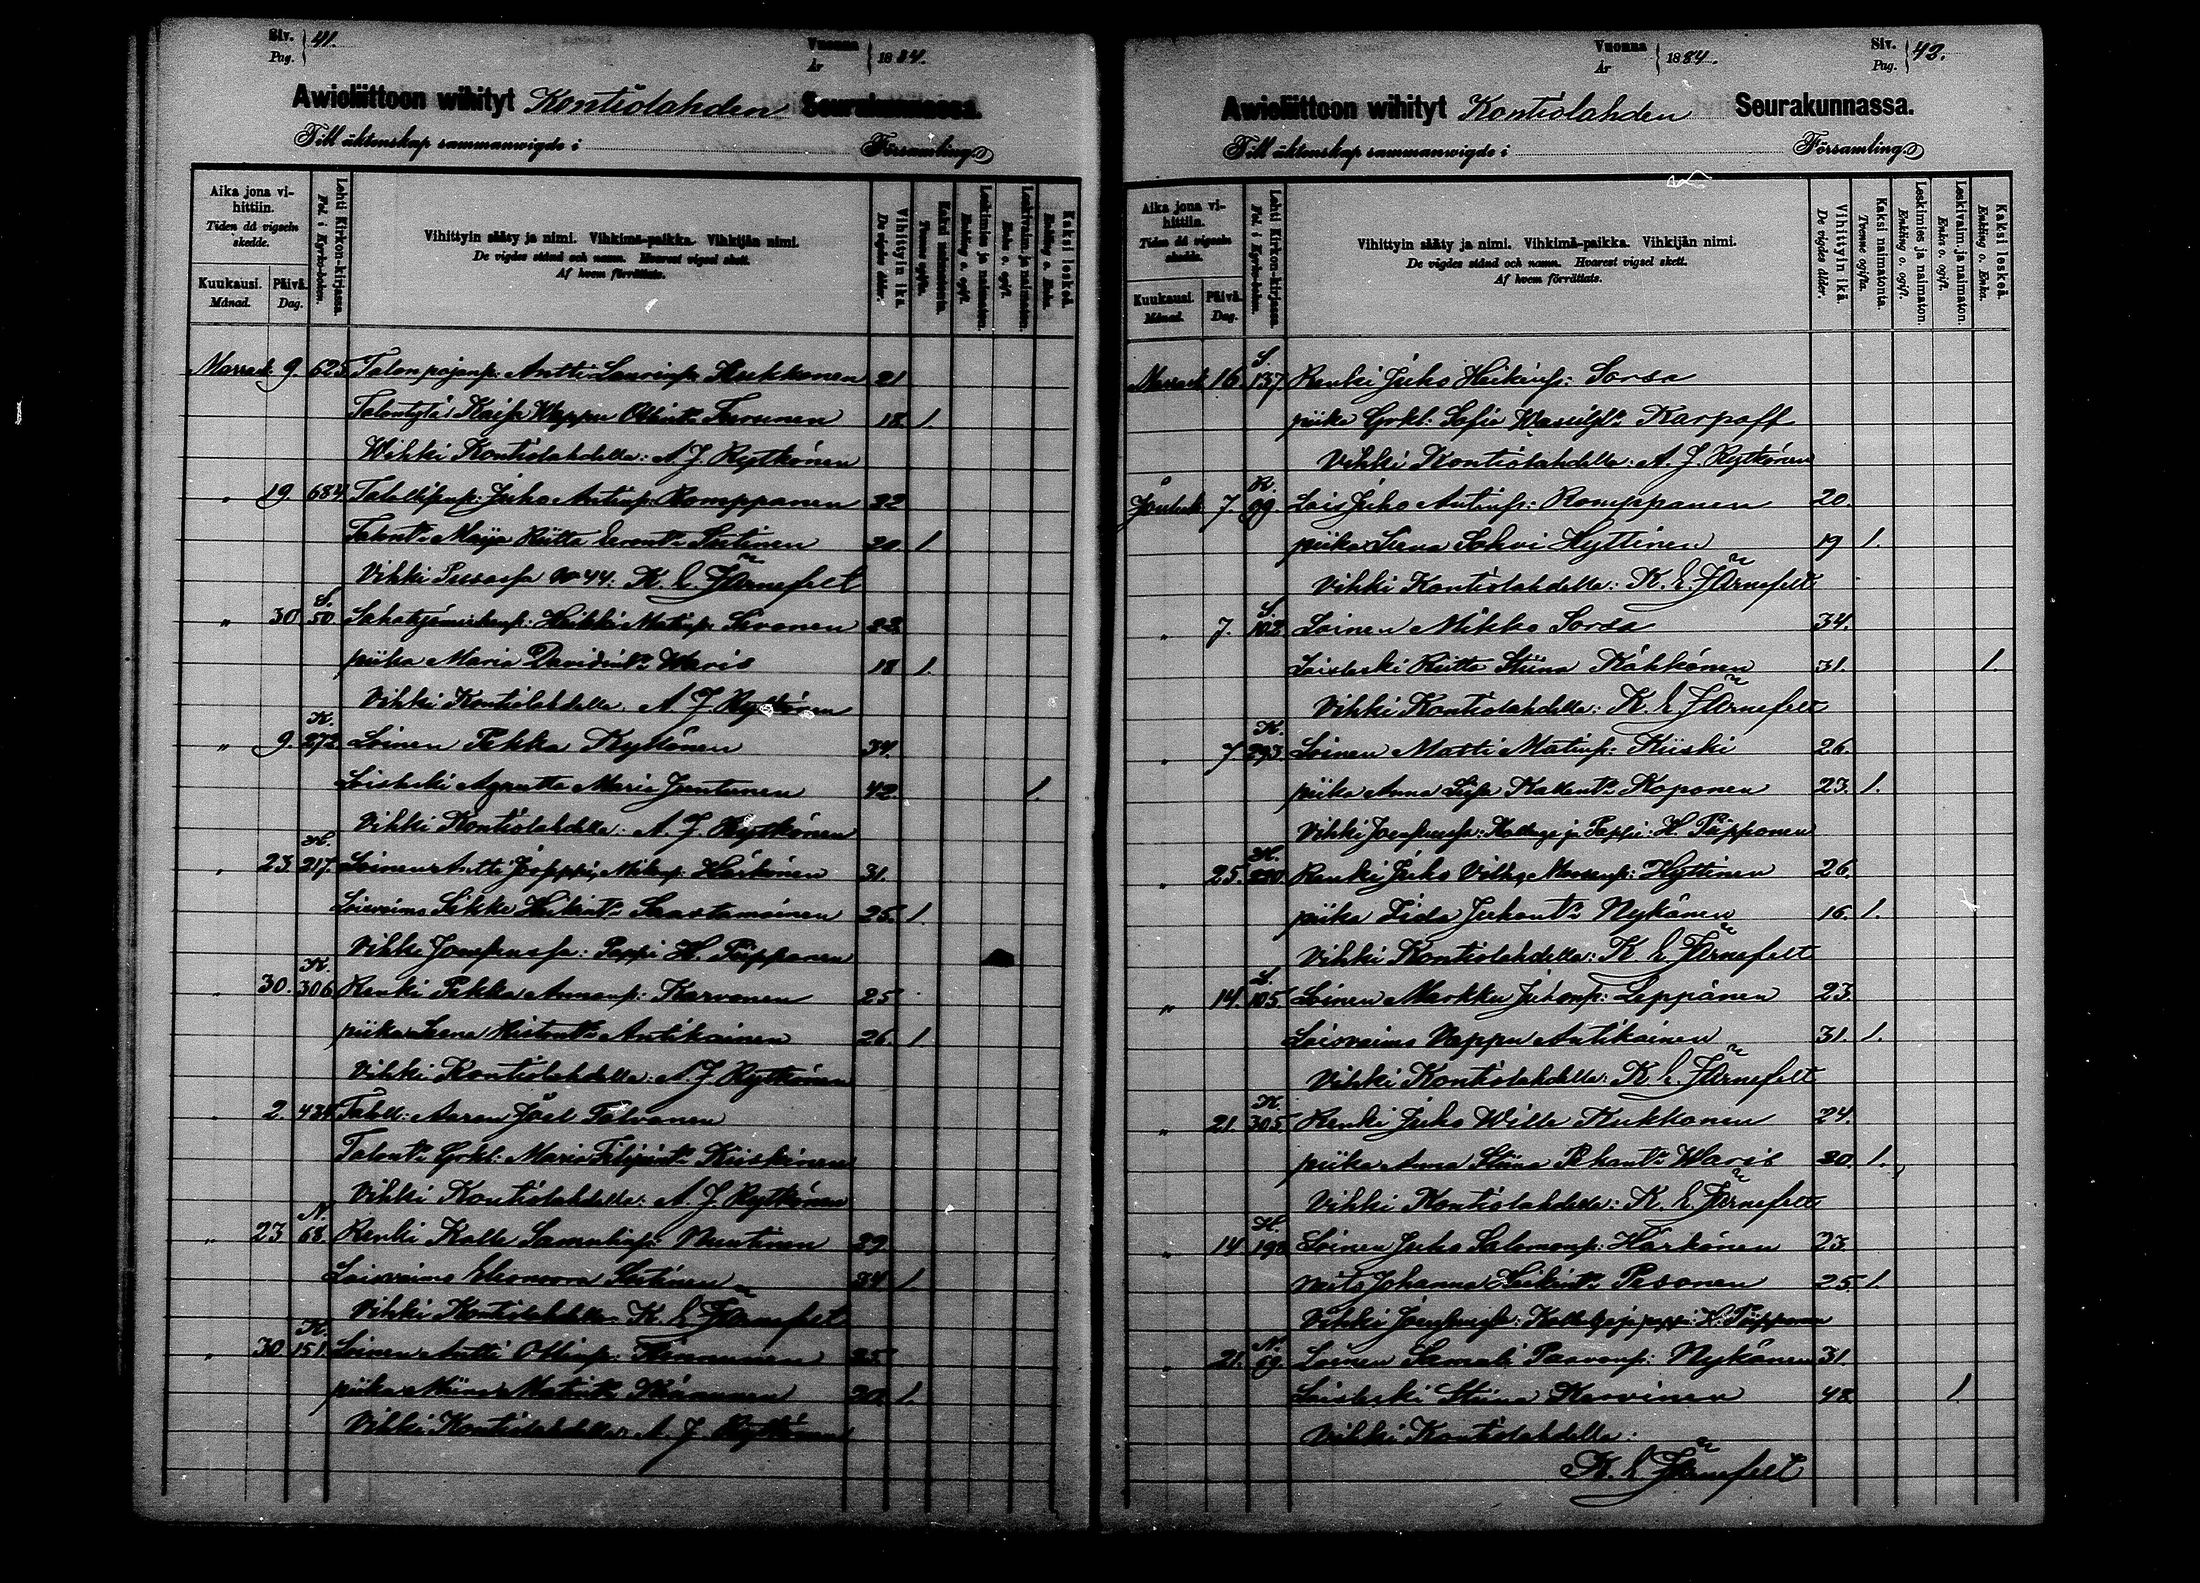 Siv. Pag. 41. Vuonna År 1884.
Awioliittoon wihityt Kontiolahden Seurakunnassa.
Till äktenskap sammanwigde i Församling.
Aika jona vihittiin. Tiden då vigseln skedde.
Kuukausi. Månad. Päivä. Dag.
Lehti Kirkon-kirjassa. Fol. i Kyrko-boken.
Vihittyin sääty ja nimi. Vihkimä-paikka. Vihkijän nimi.
De vigdes stånd och namn. Hvarest vigsel skett.
Af hvem förrättats.
Vihittyin ikä. De vigdes ålder.
Kaksi naimatonta. Tvenne ogifta.
Leskimies ja naimaton. Enkling o. ogift.
Leskivaim. ja naimaton. Enka o. ogift.
Kaksi leskeä. Enkling o. Enka.
Marrask. 9. 625. Talonpojanp: Antti Laurinp: Kukkonen 21
Talontytä: Kaisa Wappu Ollint: Turunen 18. 1.
Wihki Kontiolahdella: A. J. Rytkönen
" 19 684 Talollisenp: Juho Antinp: Romppanen 22
Talont: Maija Riitta Sutinen 20. 1.
Vihki No 44: K. E. Järnefelt
" 30 S. 50. Heikki Matinp: Sivonen 22
piika Maria Davidint: Waris 18 1.
Vihki Kontiolahdella A. J. Rytkönen
" 9. K. 272. Loinen Pekka Kyttönen 34.
Loisleski Agneta Maria Juntunen 42. 1.
Vihki Kontiolahdella: A. J. Rytkönen
" 23. H. 217. Loinen Antti Härkönen 31.
Loisvaimo Heikint: Saastamoinen 25. 1
Vihki Joensuussa: Pappi H. Piipponen
" 30. K. 306. Renki Pekka Karvonen 25
piika Leena Antikainen 26. 1
Vihki Kontiolahdella: A. J. Rytkönen
" 2. Talol: Aaron Joel Tolvanen
Talont: Grkl: Maria Filipint: Kiiskinen
Vihki Kontiolahdella: A. J. Rytkönen
" 23 N. 68. Renki Kalle Samulinp: Nuutinen 29
Loisvaimo Eleonoora Sutinen 34 1.
Vihki Kontiolahdella K. E. Järnefelt
" 30 K. 151. Loinen Antti Ollinp: 25
piika Miina Matint: 20. 1.
Vihki Kontiolahdella A. J. Rytkönen
Vuonna År 1884. Siv. Pag. 42.
Awioliittoon wihityt Kontiolahden Seurakunnassa.
Till äktenskap sammanwigde i Församling.
Aika jona vihittiin. Tiden då vigseln skedde.
Kuukausi. Månad. Päivä. Dag.
Lehti Kirkon-kirjassa. Fol. i Kyrko-boken.
Vihittyin sääty ja nimi. Vihkimä-paikka. Vihkijän nimi.
De vigdes stånd och namn. Hvarest vigsel skett.
Af hvem förrättats.
Vihittyin ikä. De vigdes ålder.
Kaksi naimatonta. Tvenne ogifta.
Leskimies ja naimaton. Enkling o. ogift.
Leskivaim. ja naimaton. Enka o. ogift.
Kaksi leskeä. Enkling o. Enka.
Marrask 16 S. 137 Renki Juho Heikinp: Sorsa
piika Grkl: Sofia Karpoff
Vihki Kontiolahdella: A. J. Rytkönen
Jouluk 7. R. 99. Lois Juho Antinp: Romppanen 20.
piika Leena Sohvi Hyttinen 19 1.
Vihki Kontiolahdella: K. E. Järnefelt
" 7. S. 102 Loinen Mikko Sorsa 34.
Loisleski Riitta Stiina Kähkönen 31. 1.
Vihki Kontiolahdella: K. E. Järnefelt
" 7. K. 293. Loinen Matti Matinp: Kiiski 26.
piika Anna Liisa Koponen 23. 1.
Vihki Joensuussa: H. Piipponen
" 25. H. Renki Juho Hyttinen 26.
piika Iida Juhont: Nykänen 16. 1.
Vihki Kontiolahdella: K E. Järnefelt
" 14. L. 105. Loinen Markku Juhonp: Leppänen 23.
Loisvaimo Vappu Antikainen 31. 1.
Vihki Kontiolahdella: K. E. Järnefelt
" 21. K. 305. Renki Juho Wille Kukkonen 24.
piika Anna Stiina Waris 20. 1.
Vihki Kontiolahdella: K. E. Järnefelt
" 14 H. Loinen Juho Salomonp: Härkönen 23
neito Johanna Heikint: Pesonen 25. 1.
Vihki H. Piipponen
" 21. N. 69. Loinen Samuli Paavonp: Nykänen 31.
Loisleski Stiina Karvinen 48. 1.
Vihki Kontiolahdella:
K. E. Järnefelt